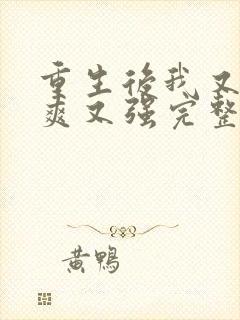 重生後我又
爽又強完整
黃鴨